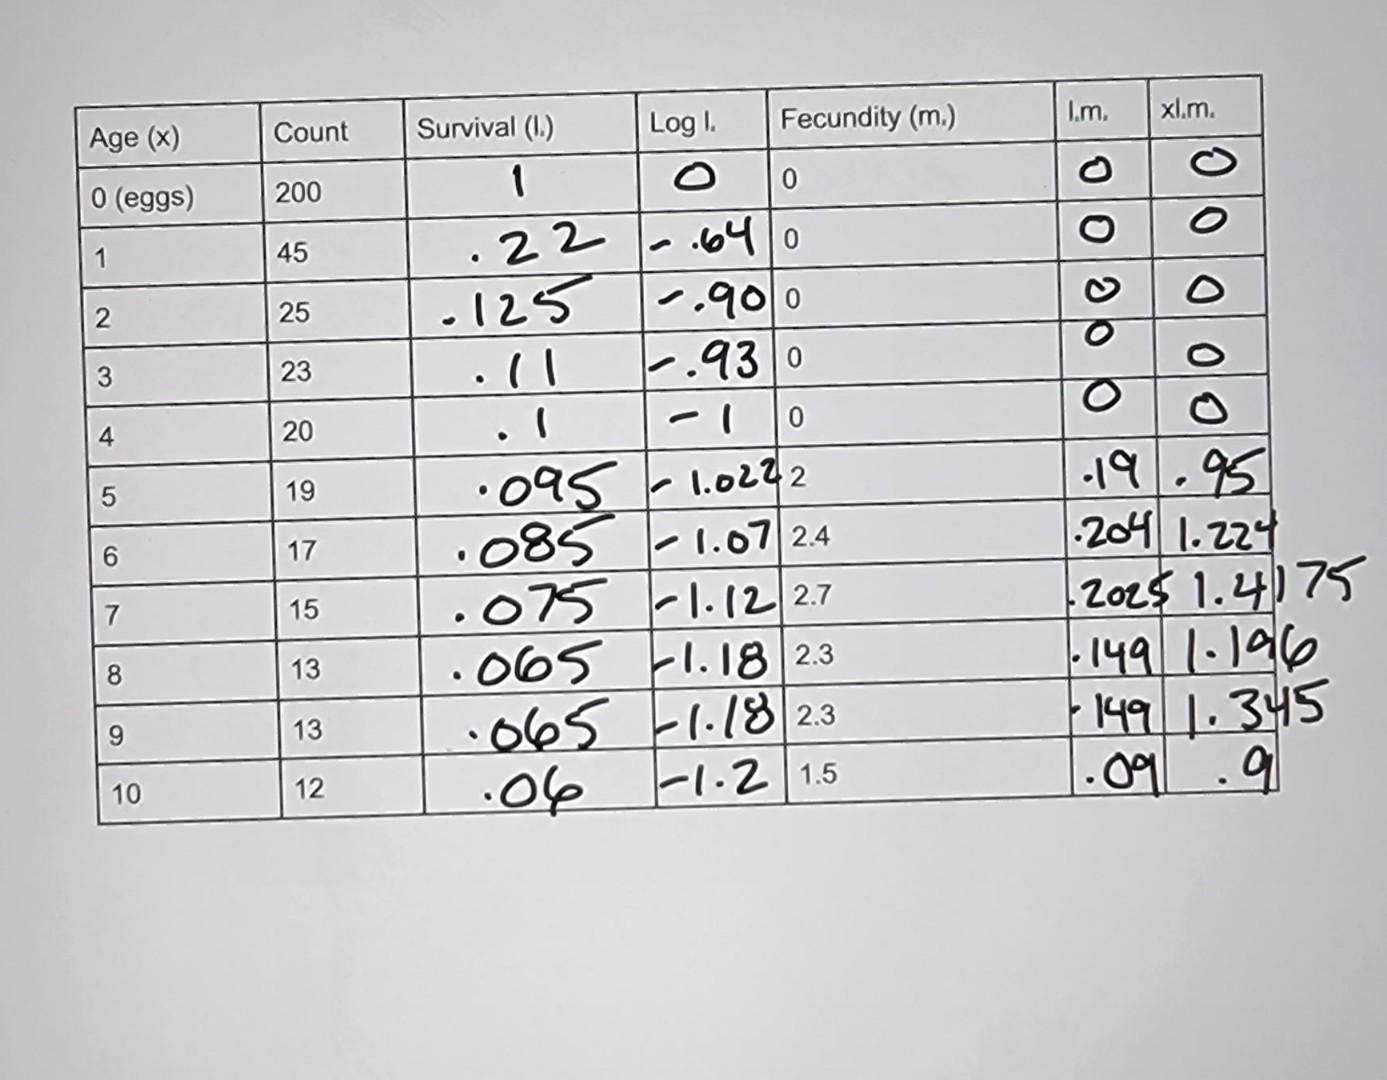 Age (x) Count Survival (l.) Log l. Fecundity (m.) l.m. xl.m.
0 (eggs) 200 1 0 0 0 0
1 45 .22 -.64 0 0 0
2 25 .125 -.90 0 0 0
3 23 .11 -.93 0 0 0
4 20 .1 -1 0 0 0
5 19 .095 -1.022 2 .19 .95
6 17 .085 -1.07 2.4 .204 1.224
7 15 .075 -1.12 2.7 .2025 1.4175
8 13 .065 -1.18 2.3 .149 1.196
9 13 .065 -1.18 2.3 .149 1.345
10 12 .06 -1.2 1.5 .09 .9